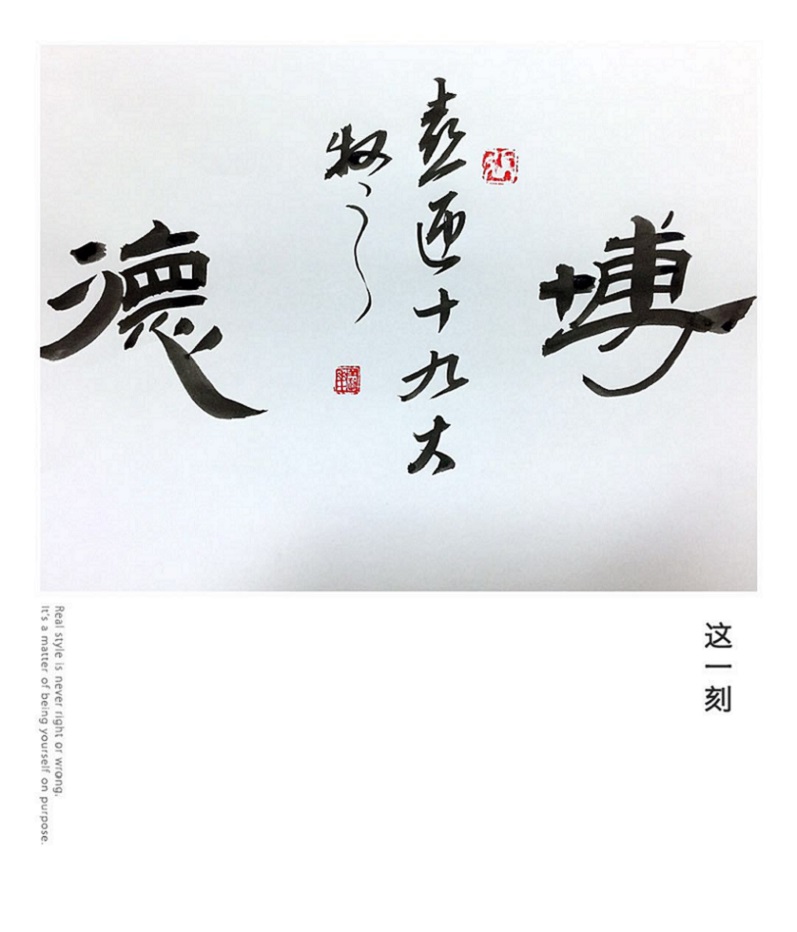 博
喜迎十九大
牧之
德
这一刻
Real style is never right or wrong.
It's a matter of being yourself on purpose.